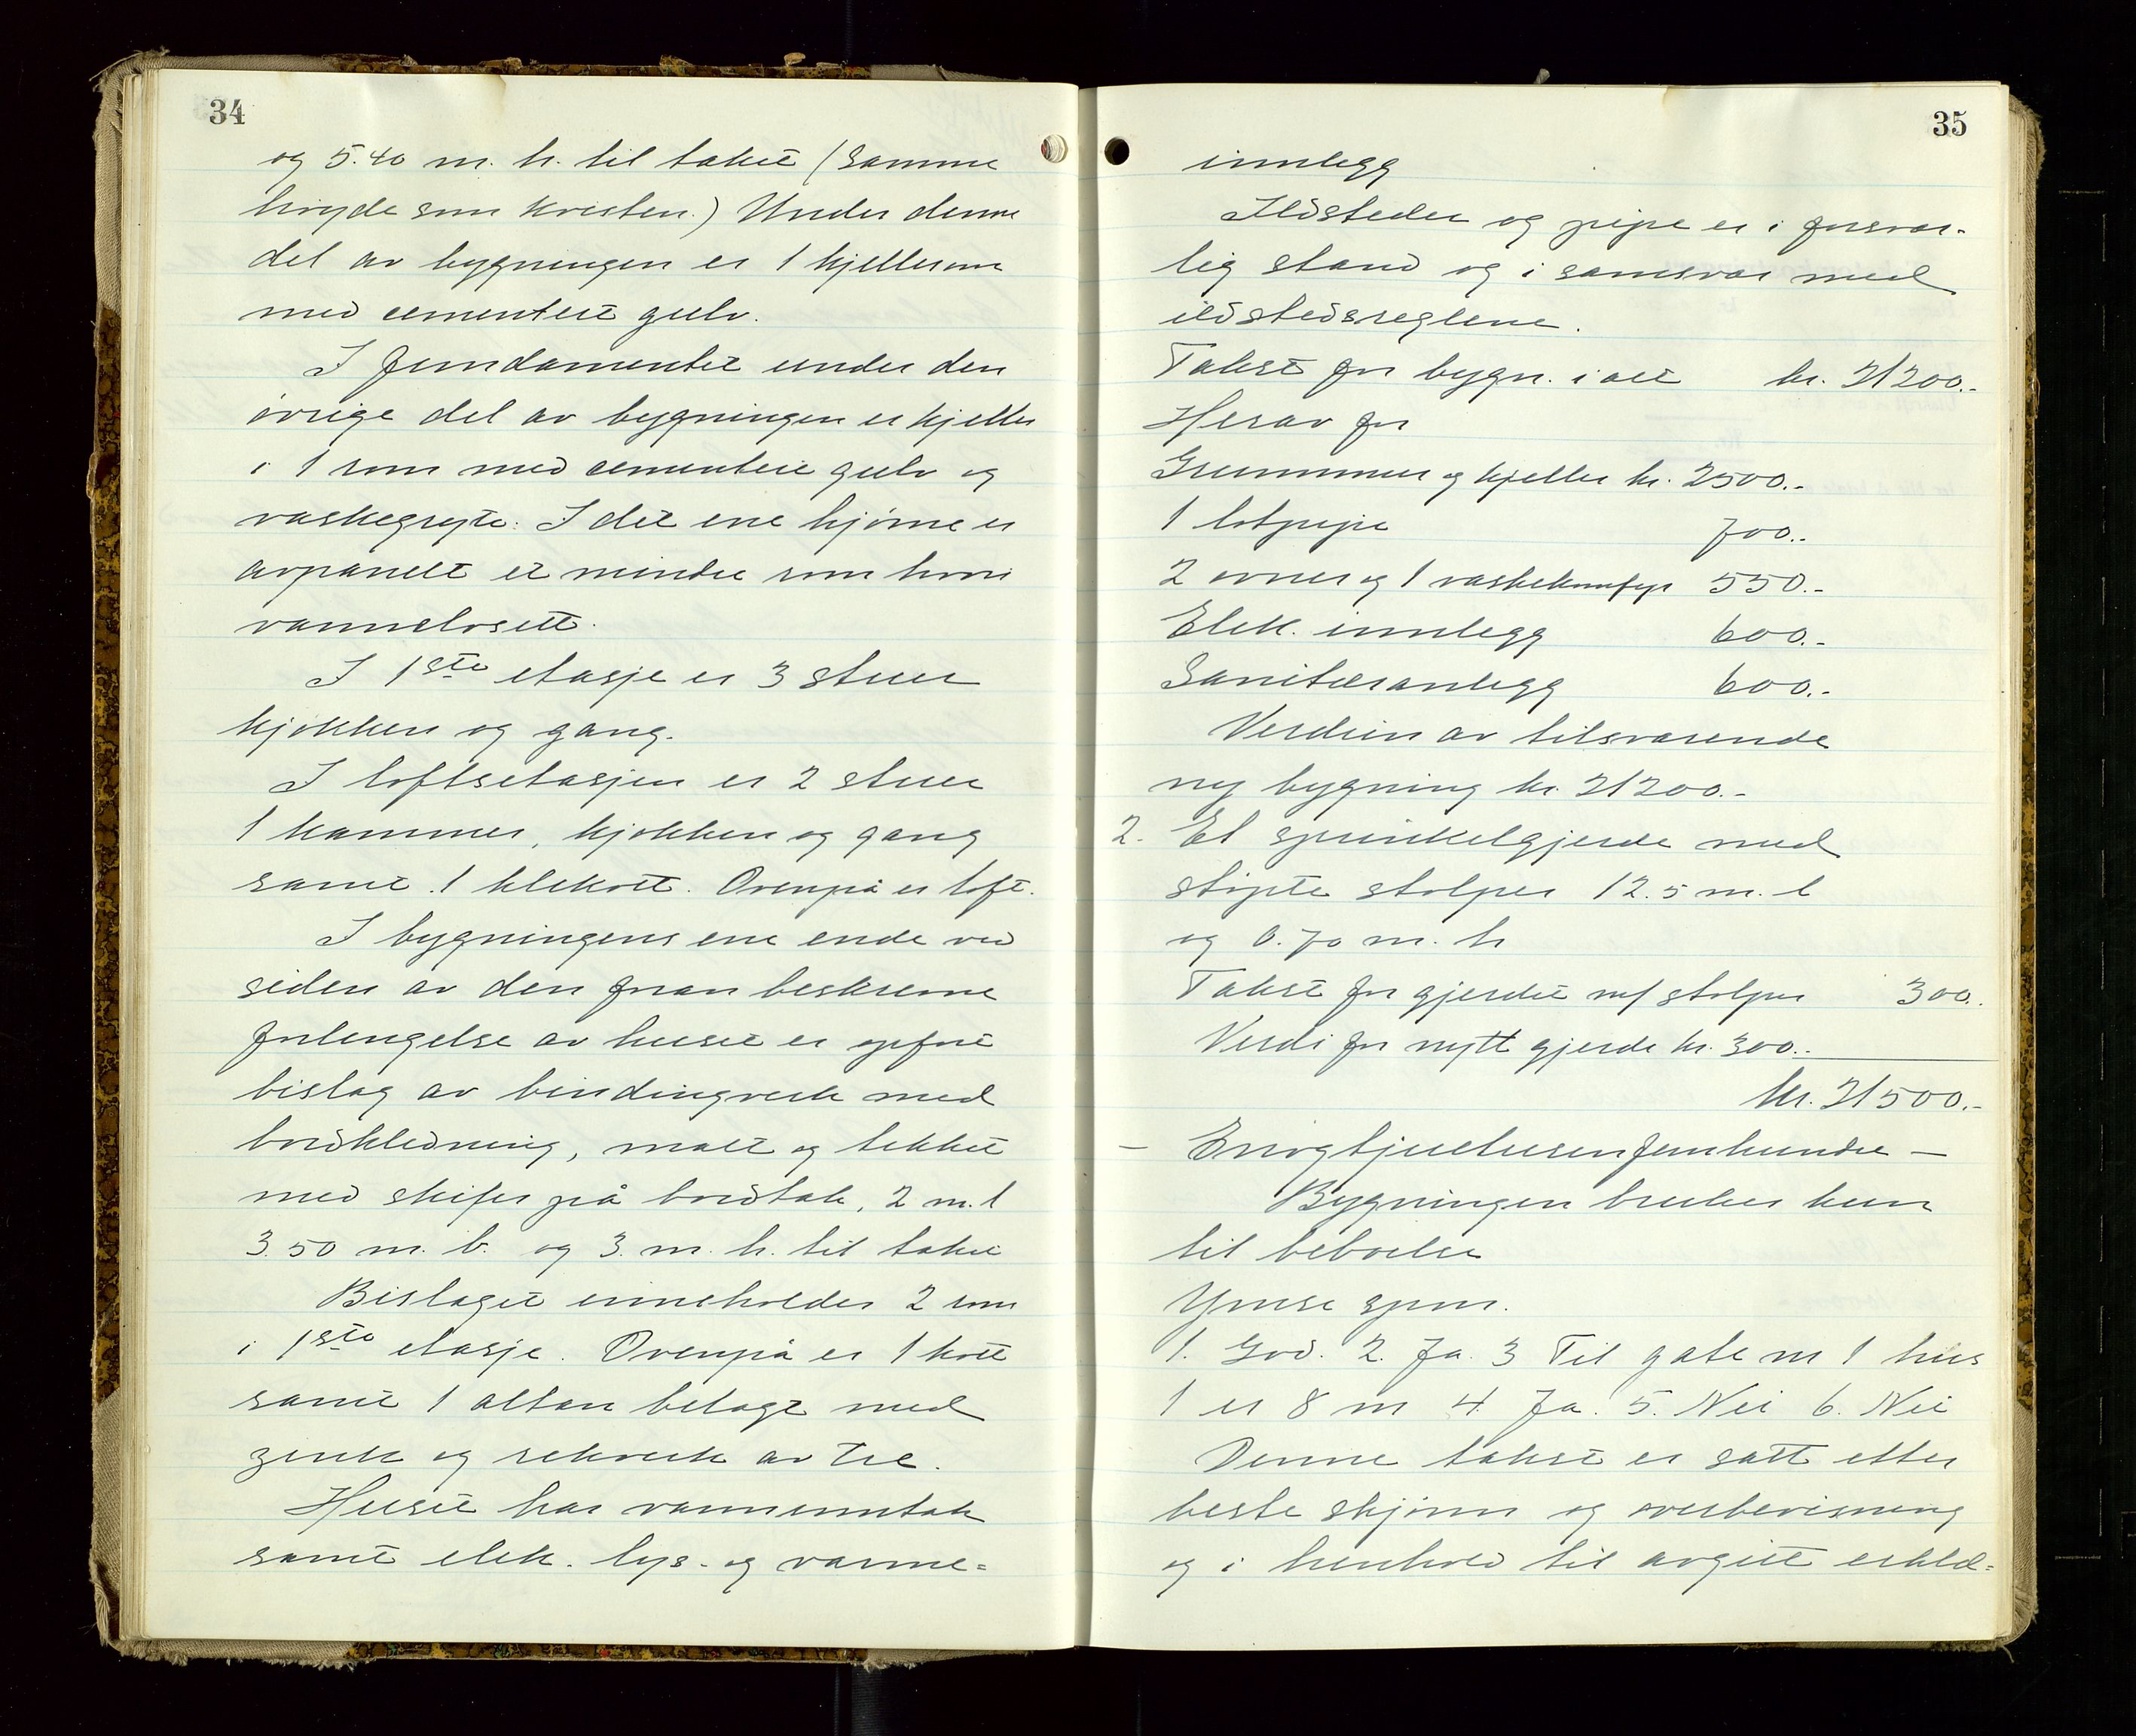 34
og 5.40 m. h. til taket (Samme
høyde som kvisten.) Under denne
del av bygningen er 1 kjellerom
med cementert gulv.
I fundamentet under den
øvrige del av bygningen er kjeller
i 1 rom med cementert gulv og
vaskegryte. I det ene hjørne er
avpanelt et mindre rom hvori
vannclosett.
I 1ste etasje er 3 stuer
kjøkken og gang.
I loftsetasjen er 2 stuer
1 kammer, kjøkken og gang
samt 1 klekott. Ovenpå er loft.
I bygningens ene ende ved
siden av den foran beskrevne
forlengelse av huset er opført
bislag av bindingverk med
bordkledning, malt og tekket
med skifer på bordtak, 2 m. l
3.50 m. b. og 3. m. h. til taket
Bislaget inneholder 2 rom
i 1ste etasje. Ovenpå er 1 kott
samt 1 altan belagt med
zink og rekverk av tre.
Huset har vanninntak
samt elek. lys- og varme=
35
innlegg
Ildsteder og pipe er i forsvar-
lig stand og i samsvar med
ildstedsreglene.
Takst for bygn. i alt kr. 21200.-
Herav for
Grunnmur og kjeller kr. 2500.-
1 løtpipe 700.-
2 ovner og 1 vaskekomfyr 550.-
Elek. innlegg 600.-
Sanitæranlegg 600.-
Verdien av tilsvarende
ny bygning kr. 21200.-
2. Et sprinkelgjerde med
støpte stolper 12.5 m. l
og 0.70 m. h
Takst for gjerdet m/ stolper 300.
Verdi for nytt gjerde kr. 300.-
kr. 21500.-
- Enogtjuetusenfemhundre -
Bygningen brukes kun
til beboelse
Ymse spm.
1. God. 2. Ja. 3 Til gate nr 1 hus
1 er 8 m 4. Ja. 5. Nei 6. Nei
Denne takst er satt etter
beste skjønn og overbevisning
og i henhold til avgitt erklæ=